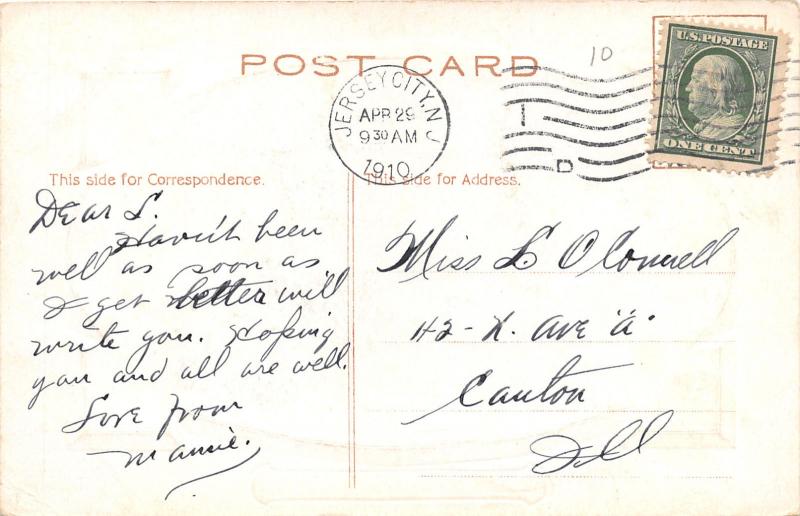 POST CARD
10
U.S. POSTAGE
ONE CENT
JERSEY CITY, N J
APR 29
9 30 AM
1910
1
D
This side for Correspondence.
This side for Address.
Dear L.
Haven't been
well as soon as
I get better will
write you. Hoping
you and all are well.
Love from
Mamie.
Miss L O'Connell
42 - N. Ave "A"
Canton
Ill